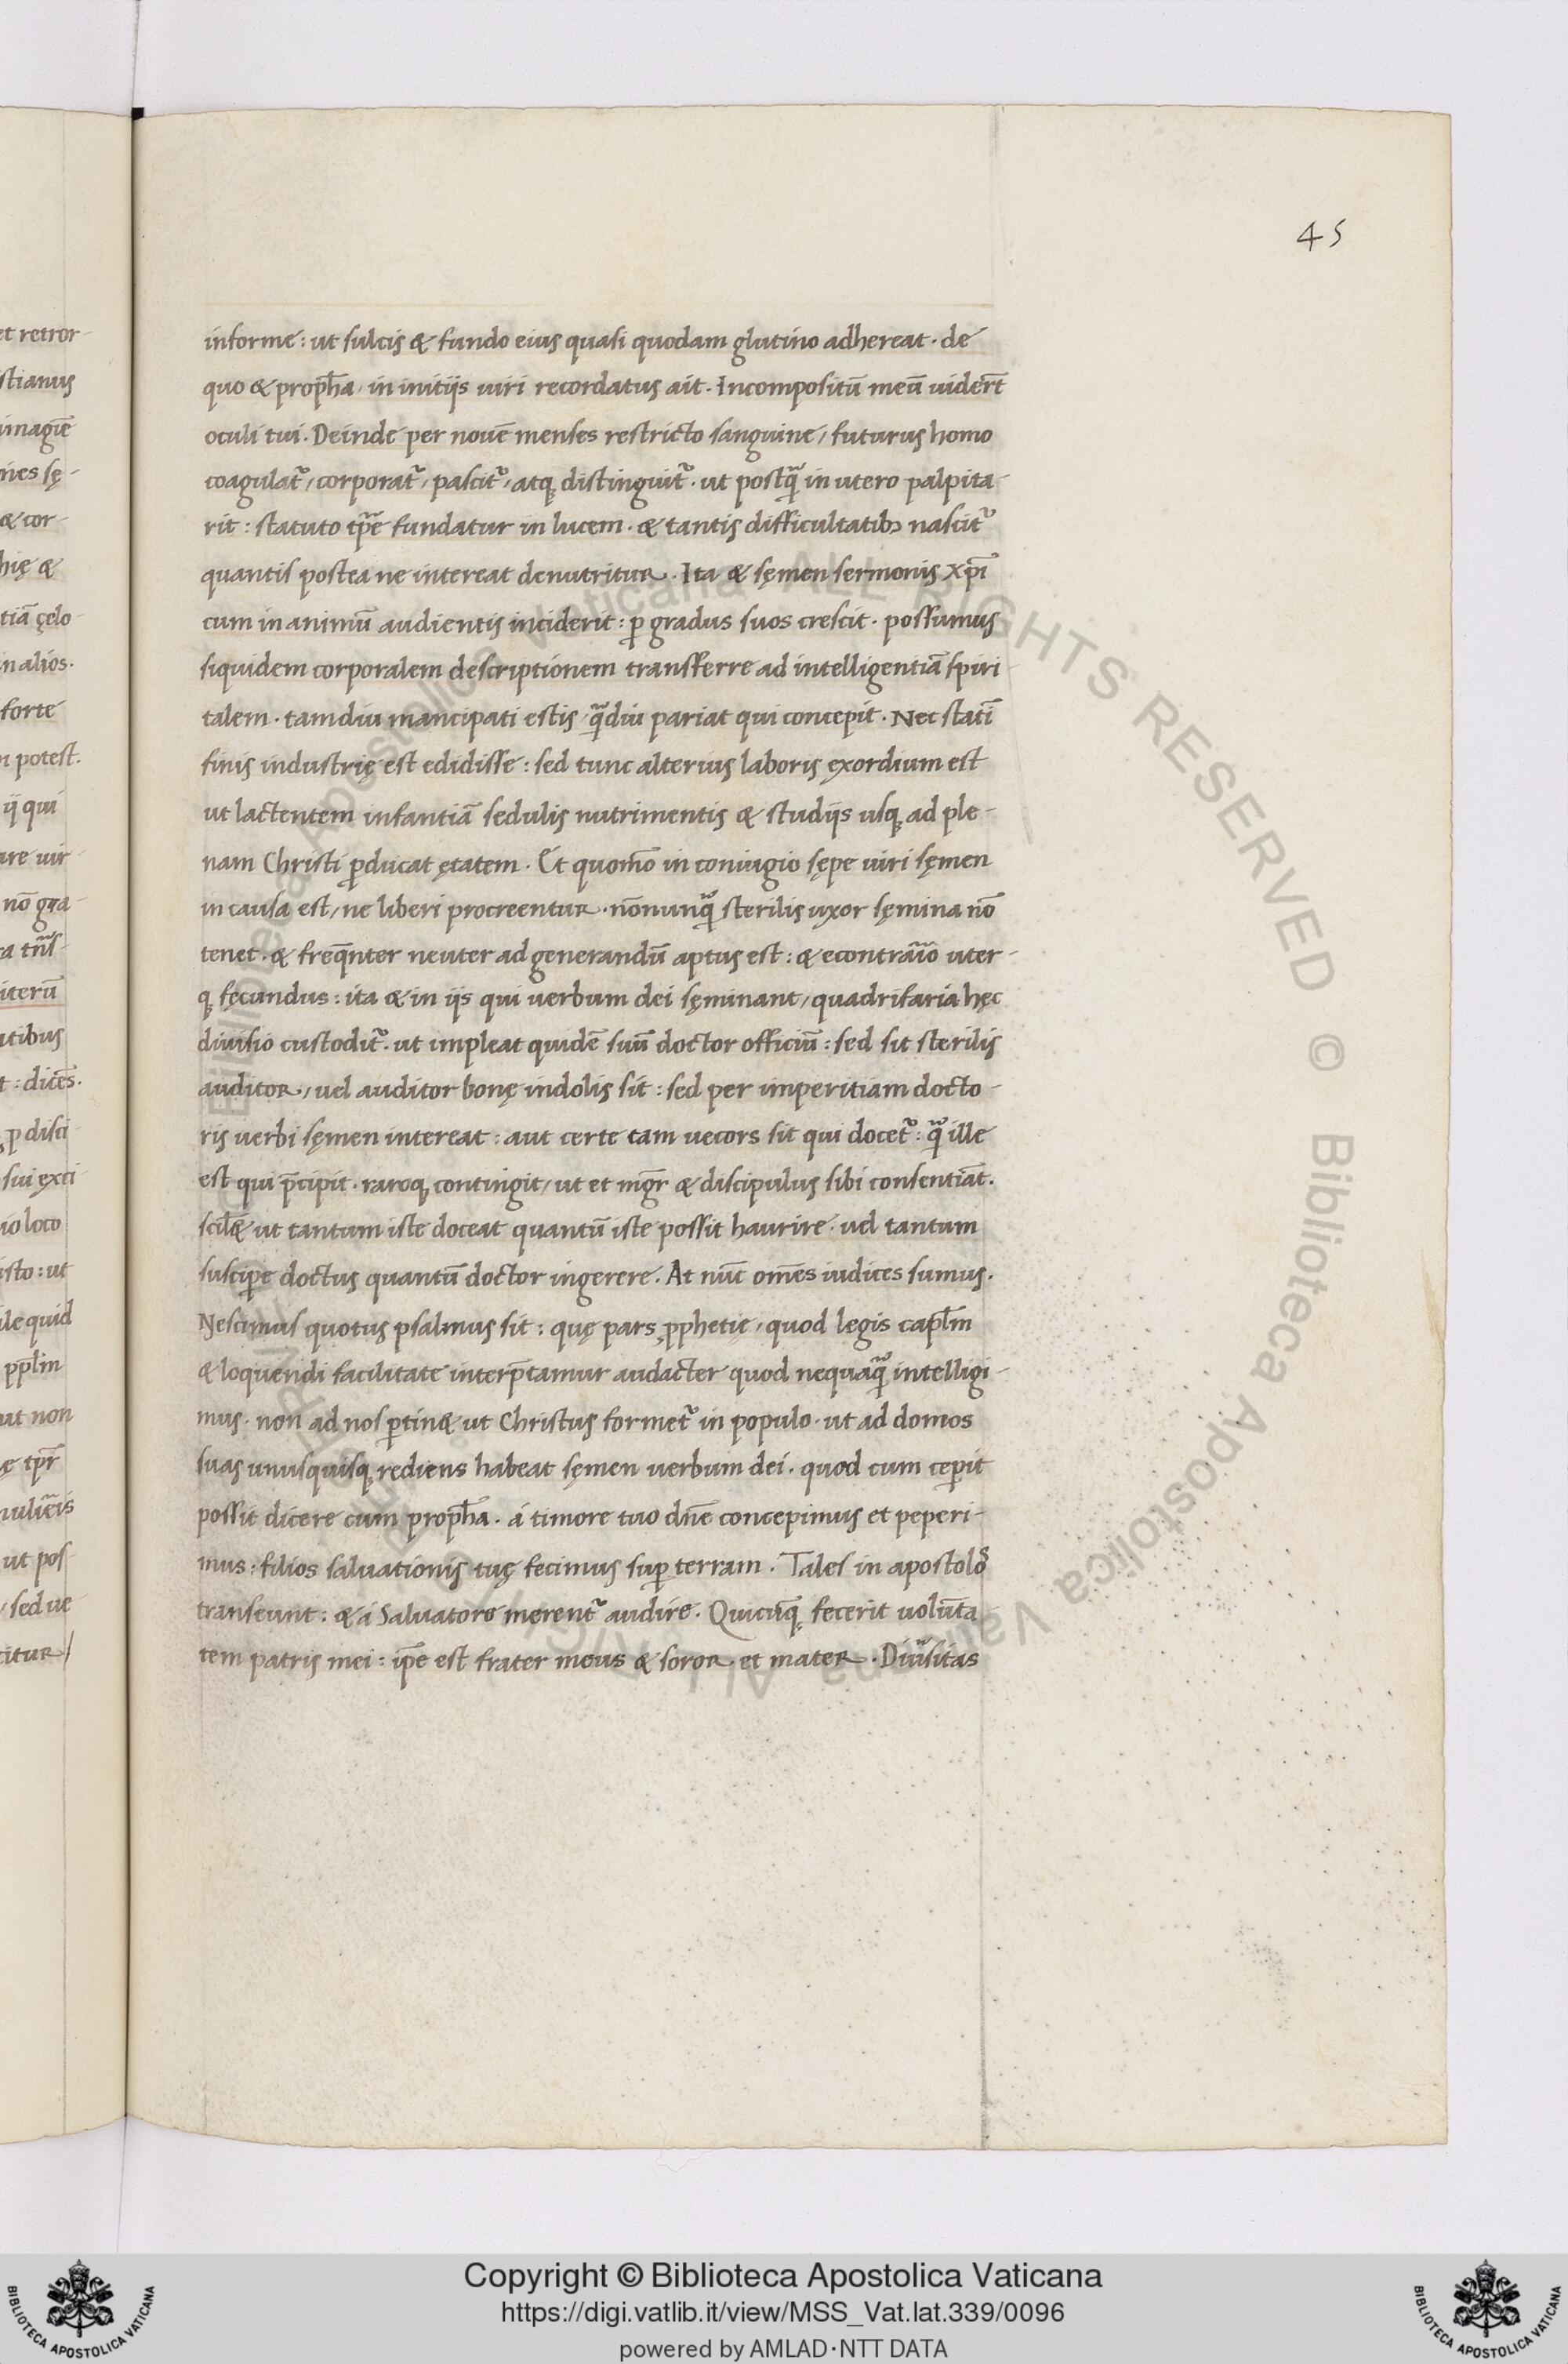 45
informe: ut sulcis & fundo eius quasi quodam glutino adhereat. de
quo & proph̄a, in initijs uiri recordatus ait. Incompositū meū uidert̄
oculi tui. Deinde per nouē menses restricto sanguine, futurus homo
coagulat᷑, corporat᷑, pascit᷑, atq; distinguit᷑. ut postq̄ in utero palpita-
rit: statuto tp̄e fundatur in lucem. & tantis difficultatibꝫ nascit᷑
quantis postea ne intereat denutritur. Ita & sęmen sermonis Xp̄i
cum in animū audientis inciderit: ꝑ gradus suos crescit. possumus
siquidem corporalem descriptionem transferre ad intelligentiā spiri-
talem. tamdiu mancipati estis, q̄diu pariat qui concepit. Nec statī
finis industrię est edidisse: sed tunc alterius laboris exordium est
ut lactentem infantiā sedulis nutrimentis & studijs usq; ad ple-
nam Christi ꝑducat ętatem. Et quomō in coniugio sępe uiri sęmen
in causa est, ne liberi procreentur. nōnunq̄ sterilis uxor sęmina nō
tenet. & freq̄nter neuter ad generandū aptus est: & econtrārio uter-
q; fecundus: ita & in ijs qui uerbum dei sęminant, quadrifaria hęc
diuisio custodit᷑. ut impleat quidē suū doctor officiū: sed sit sterilis
auditor, uel auditor bonę indolis sit: sed per imperitiam docto-
ris uerbi sęmen intereat: aut certe tam uecors sit qui docet᷑: q̄ ille
est qui p̄cipit. raroq; contingit, ut et mgr̄ & discipulus sibi consentiāt.
scil& ut tantum iste doceat quantū iste possit haurire. uel tantum
suscipe doctus quantū doctor ingerere. At nūc om̄es iudices sumus.
Nescimus quotus psalmus sit: quę pars ꝓphetię, quod legis capl̄m
& loquendi facilitate interp̄tamur audacter quod nequaq̄ intelligi-
mus. non ad nos ꝑtin& ut Christus format᷑ in populo. ut ad domos
suas unusquisq; rediens habeat sęmen uerbum dei. quod cum ceꝑit
possit dicere cum proph̄a. á timore tuo dn̄e concepimus et peperi-
mus: filios saluationis tuę fecimus suꝑ terram. Tales in apostolos
transeunt: & á Saluatore merent᷑ audire. Quicūq; fecerit uolūta
tem patris mei: ip̄e est frater meus & soror. et mater. Diūsitas
et retror-
stianus
imaginē
nes sę-
& cor-
hię &
tiā cęlo-
in alios.
forte
n potest.
ij qui
are uir-
nō gra-
iterū
atibus
t: dicēs.
ꝑ disci-
sui exci
io loco
sto: ut
le quid
ppl̄m
ut non
ut pos-
, sed ue
citur
Copyright © Biblioteca Apostolica Vaticana
https://digi.vatlib.it/view/MSS_Vat.lat.339/0096
powered by AMLAD·NTT DATA
BIBLIOTECA APOSTOLICA VATICANA
BIBLIOTECA APOSTOLICA VATICANA
Biblioteca Apostolica Vaticana ALL RIGHTS RESERVED © Biblioteca Apostolica Vaticana ALL RIGHTS RESERVED ©